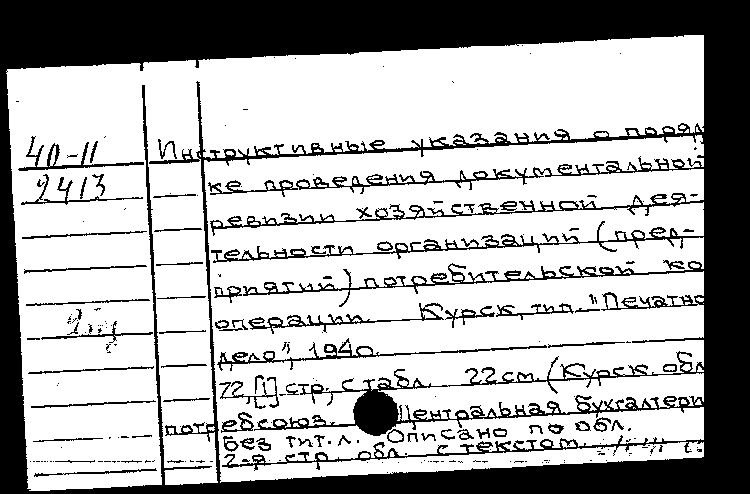 40-11
2413
Инструктивные указания о поряд
ке проведения документальной
ревизии хозяйственной дея-
тельности организаций (пред-
приятий) потребительской ко
операции. Курск, тип. "Печатно
дело", 1940.
72, [1] стр, с табл. 22 см. (Курск. обл
потребсоюз. Центральная бухгалтери
Без тит. л. Описано по обл.
2-я стр. обл. с текстом.